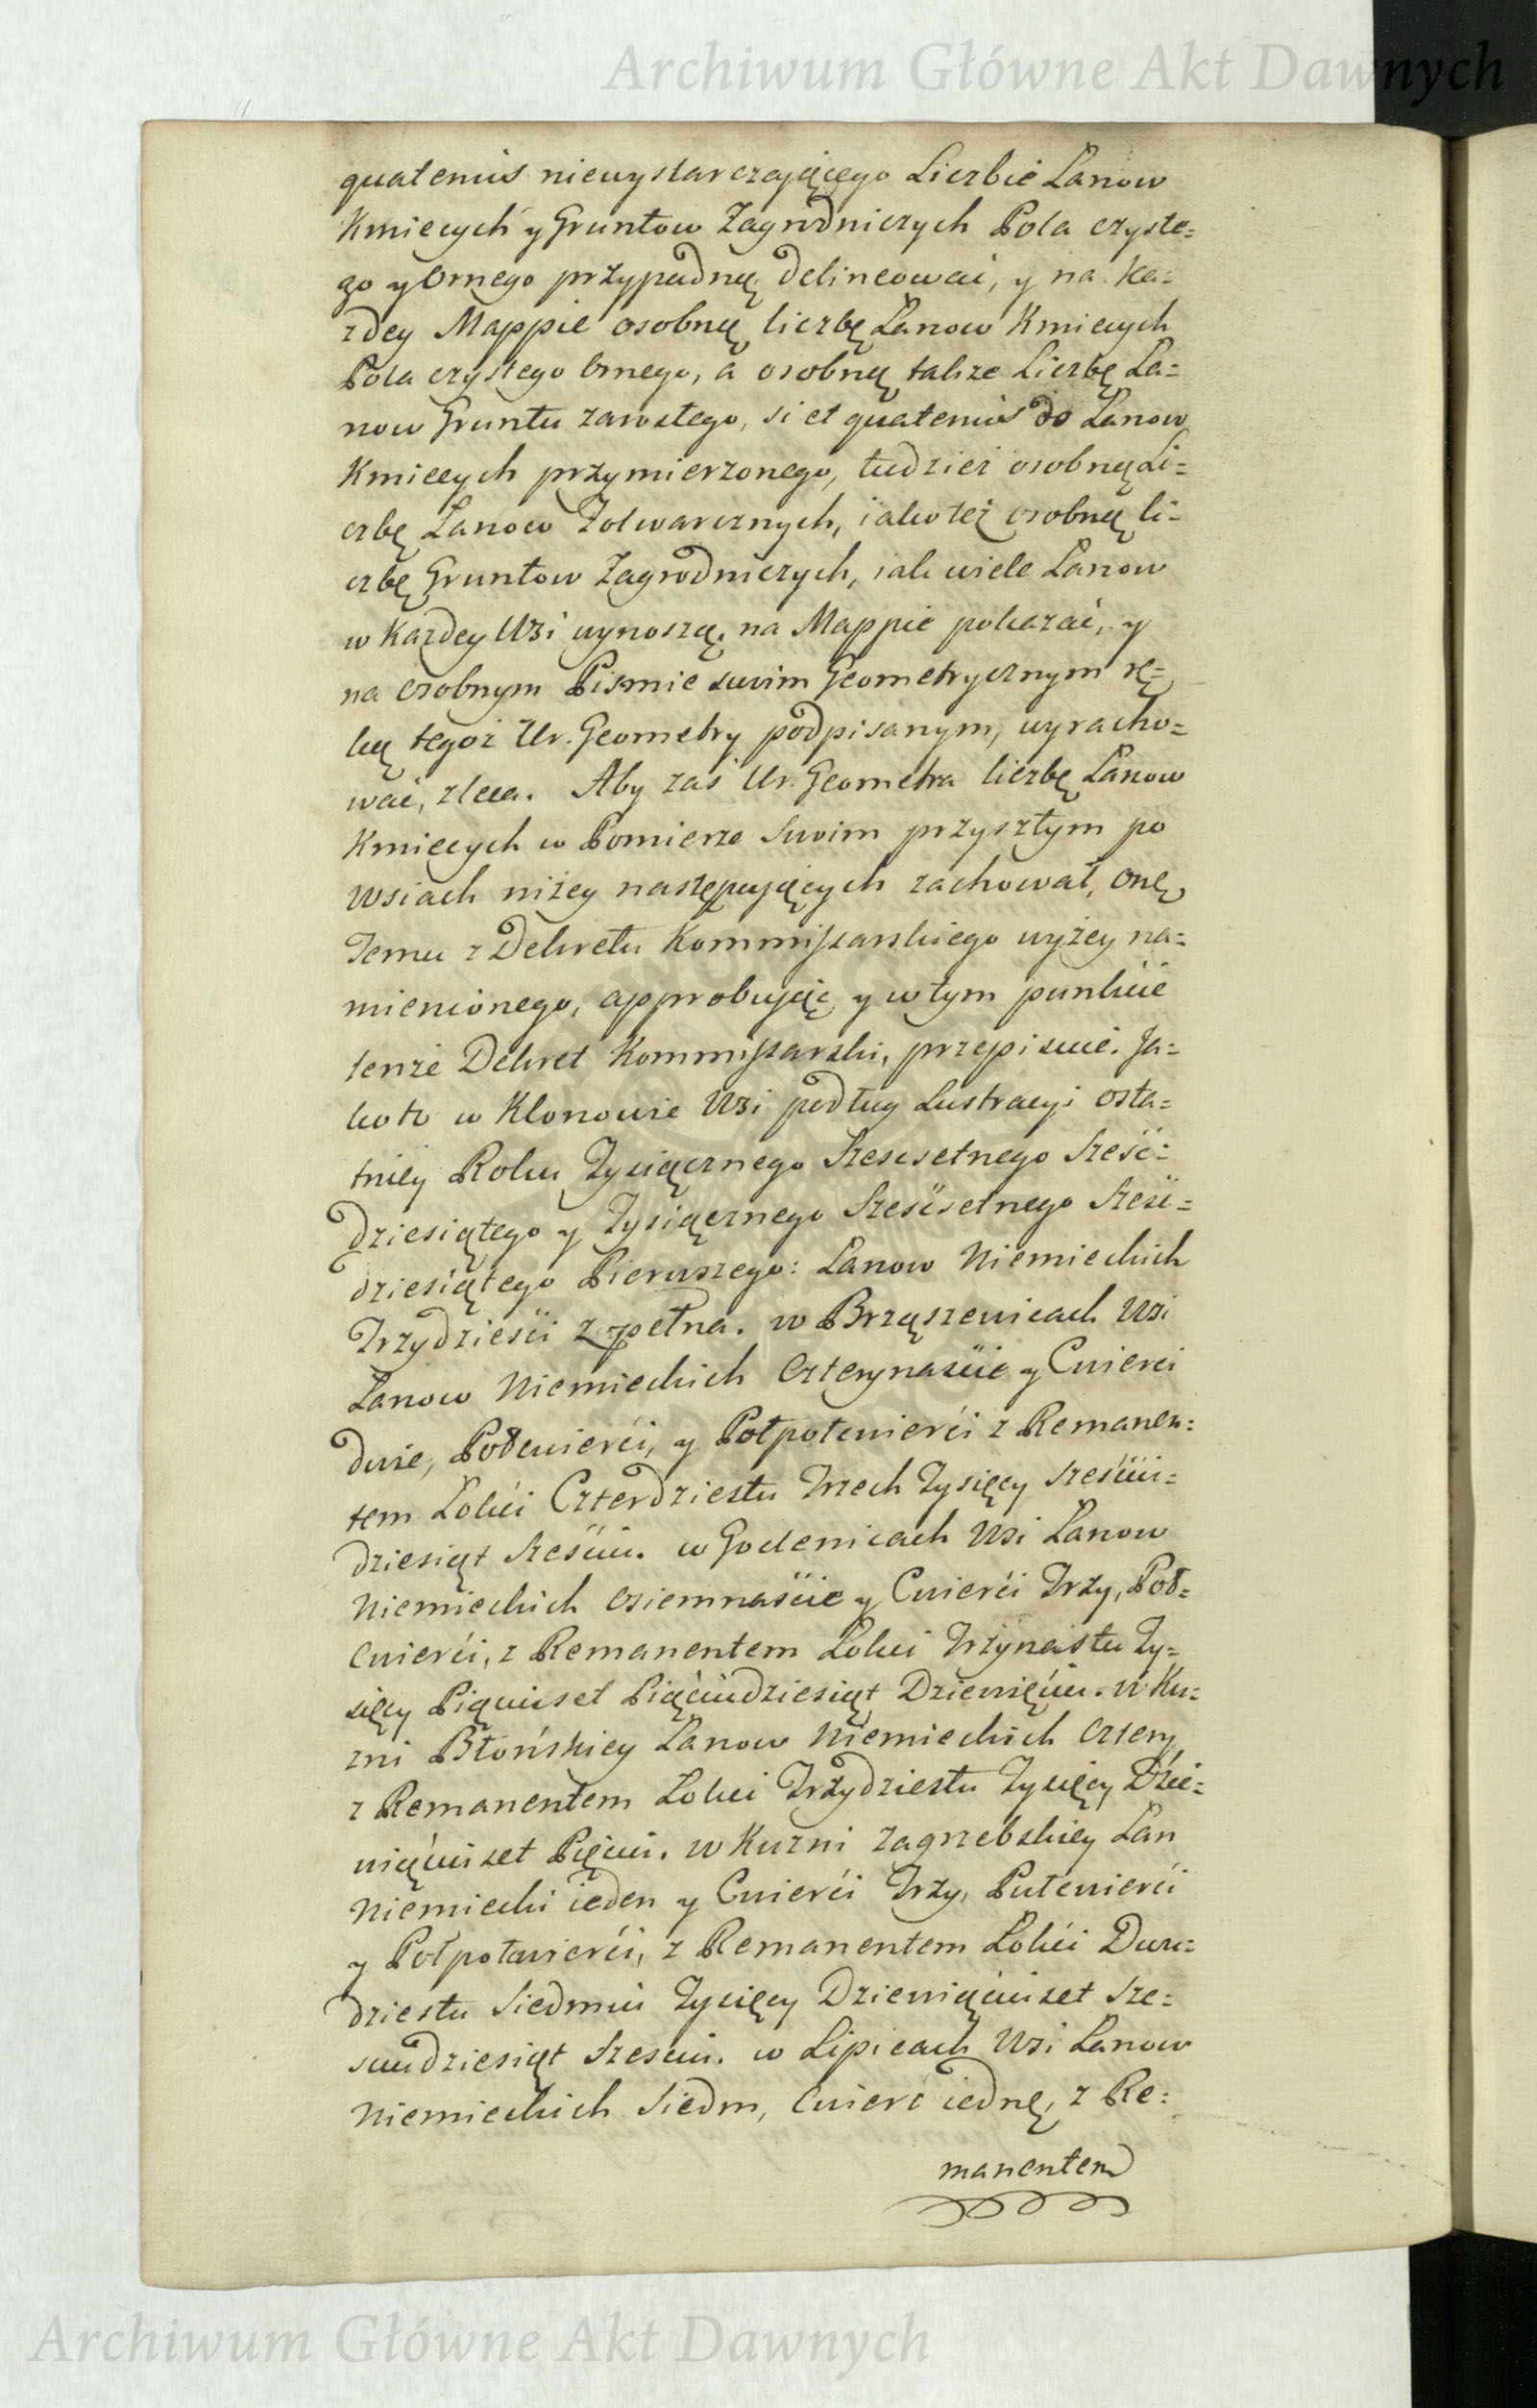 Archiwum Główne Akt Dawnych
quatenus niewystarczaiącego Liczbie Łanow
Kmiecych y Gruntow Zagrodniczych Pola czyste=
go y Ornego przypadną delineować, y na ka=
żdey Mappie osobną liczbę Łanow Kmiecych
Pola czystego Ornego, a osobną także Liczbę Ła=
now Gruntu zarosłego, si et quatenus do Łanow
Kmiecych przymierzonego, tudzież osobną Li=
czbę Łanow Folwarcznych, iako też osobną li=
czbę Gruntow Zagrodniczych, iak wiele Łanow
w każdey Wsi wynoszą, na Mappie pokazać, y
na osobnym Pismie swoim Geometrycznym rę=
ką tegoż Ur. Geometry podpisanym, wyracho=
wać, zleca. Aby zaś Ur. Geometra liczbę Łanow
Kmiecych w Pomierze Swoim przyszłym po
Wsiach niżey następuiących zachował, onę
Jemu z Dekretu Kommissarskiego wyżey na=
mienionego, approbuiąc y w tym punkcie
tenże Dekret Kommissarski, przepisuie. Ja=
koto w Klonowie Wsi podług Lustracyi osta=
tniey Roku Tysiącznego Szescsetnego Sześć=
dziesiątego y Tysiącznego Sześćsetnego Sześć=
dziesiątego Pierwszego: Łanow Niemieckich
Trzydzieści zpełna. w Brząszewicach Wsi
Łanow Niemieckich Czterynaście y Cwierci
dwie, Połcwierci, y Połpołcwierci z Remanen=
tem Łokci Czterdziestu Trzech Tysięcy Sześciu=
dziesiąt Sześciu. w Godenicach Wsi Łanow
Niemieckich Osiemnaście y Cwierci Trzy, Poł=
cwierci, z Remanentem Łokci Trzynastu Ty=
sięcy Pięciuset Pięciudziesiąt Dziewięciu. w Ku=
zni Błońskiey Łanow Niemieckich Cztery
z Remanentem Łokci Trzydziestu Tysięcy Dzie=
więciuset Pięciu. w Kuzni Zagrzebskiey Łan
Niemiecki ieden y Cwierci Trzy, Pułcwierci
y Połpołcwierci, z Remanentem Łokci Dwu=
dziestu Siedmiu Tysięcy Dziewięciuset Sze=
sciudziesiąt Szesciu. w Lipicach Wsi Łanow
Niemieckich Siedm, Cwierć iednę, z Re=
manentem
Archiwum Główne Akt Dawnych